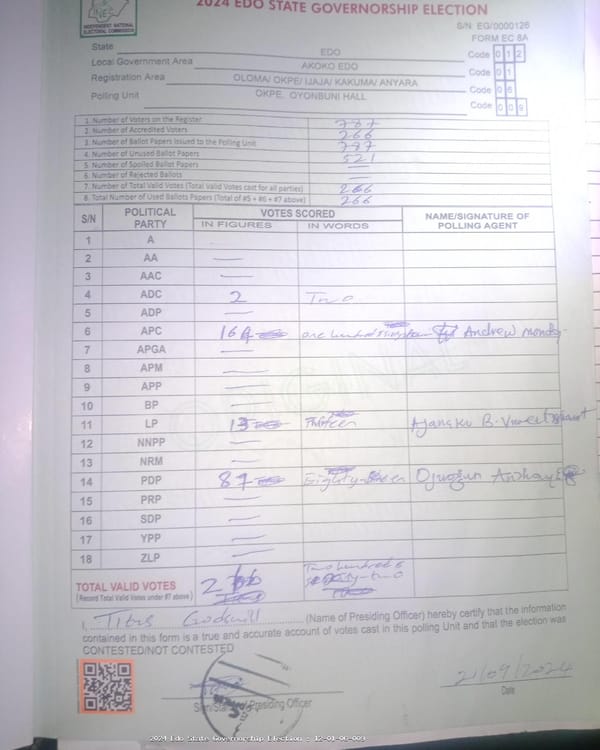 2024 EDO STATE GOVERNORSHIP ELECTION
INEC
INDEPENDENT NATIONAL ELECTORAL COMMISSION
S/N: EG/0000126
FORM EC 8A
State EDO Code 0 1 2
Local Government Area AKOKO EDO Code 0 1
Registration Area OLOMA/ OKPE/ IJAJA/ KAKUMA/ ANYARA Code 0 6
Polling Unit OKPE, OYONBUNI HALL Code 0 0 9
1. Number of Voters on the Register 787
2. Number of Accredited Voters 266
3. Number of Ballot Papers Issued to the Polling Unit 787
4. Number of Unused Ballot Papers 521
5. Number of Spoiled Ballot Papers —
6. Number of Rejected Ballots —
7. Number of Total Valid Votes (Total Valid Votes cast for all parties) 266
8. Total Number of Used Ballots Papers (Total of #5 + #6 + #7 above) 266
S/N POLITICAL PARTY VOTES SCORED NAME/SIGNATURE OF POLLING AGENT
IN FIGURES IN WORDS
1 A
2 AA —
3 AAC —
4 ADC 2 Two
5 ADP —
6 APC 164 one hundred Andrew
7 APGA —
8 APM —
9 APP —
10 BP —
11 LP 13 Thirteen B.
12 NNPP —
13 NRM —
14 PDP 87
15 PRP —
16 SDP —
17 YPP —
18 ZLP —
TOTAL VALID VOTES 266 Two hundred &
(Record Total Valid Votes under #7 above)
I, Titus Godswill (Name of Presiding Officer) hereby certify that the information
contained in this form is a true and accurate account of votes cast in this polling Unit and that the election was
CONTESTED/NOT CONTESTED
21/09/2024
Sign/Stamp of Presiding Officer Date
2024 Edo State Governorship Election : 12-01-06-009